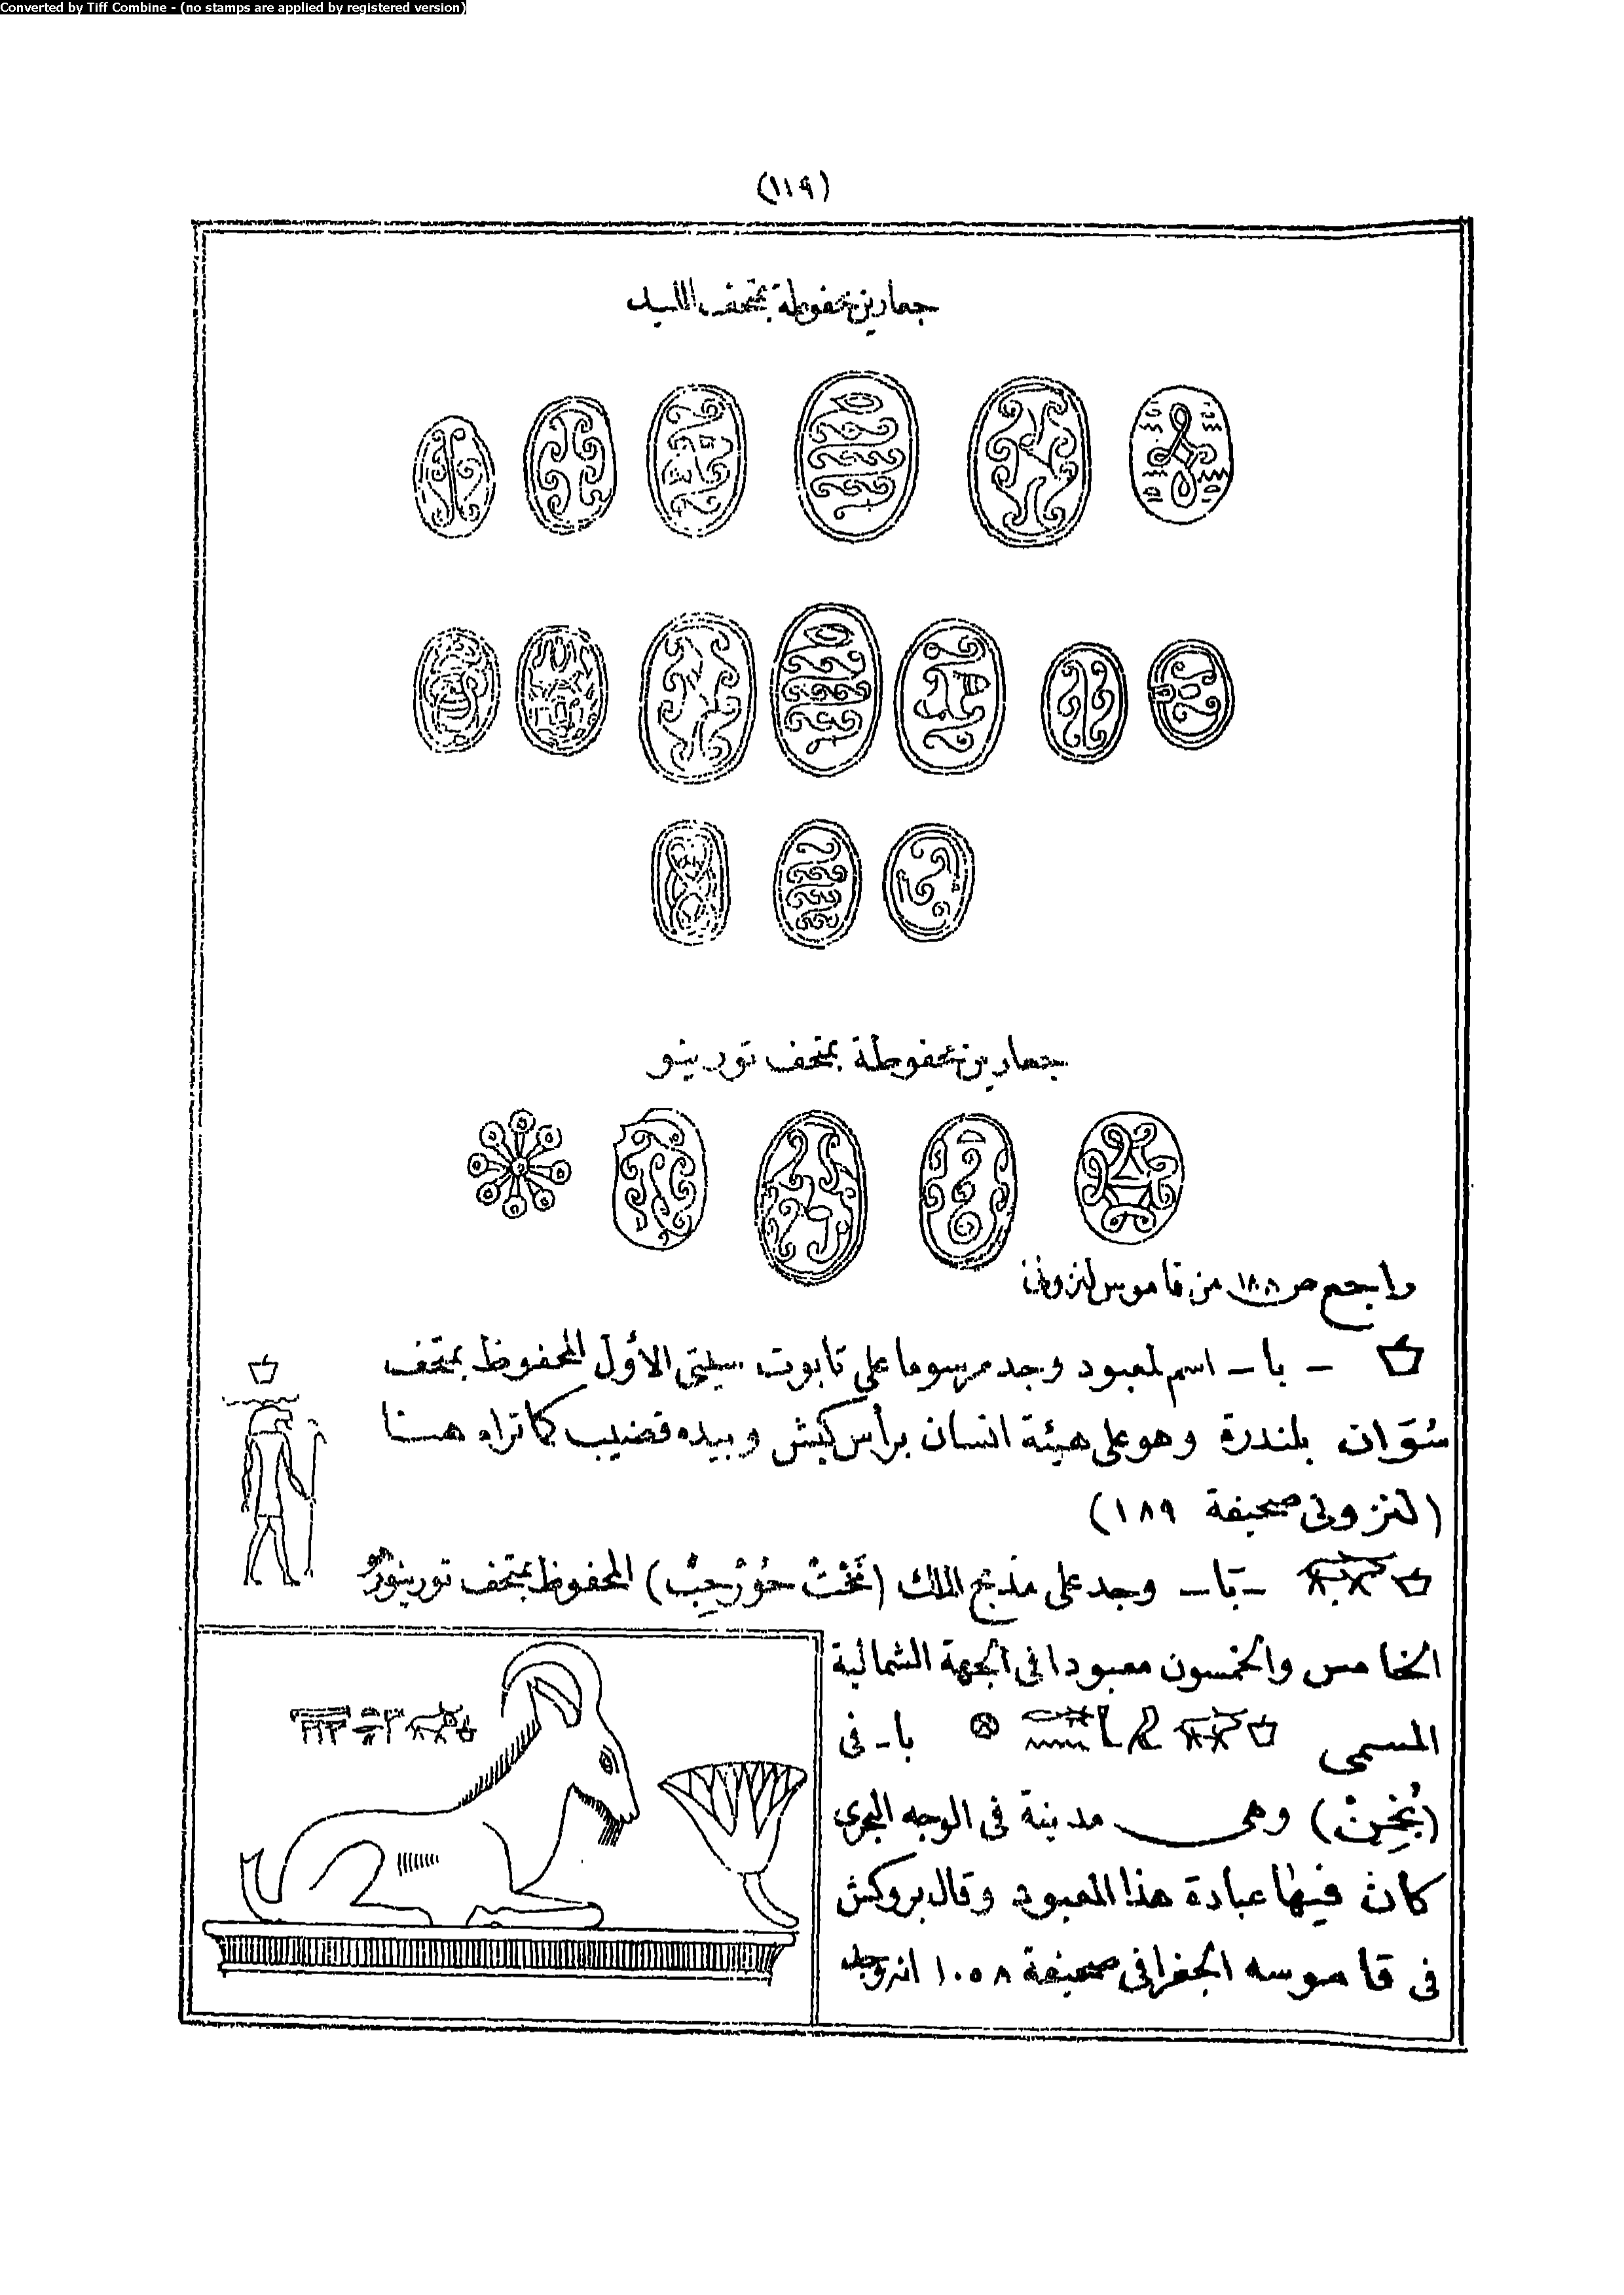 Converted by Tiff Combine - (no stamps are applied by registered version)
(١١٩)
جعارين محفوظة بمتحف
جعارين محفوظة بمتحف تورينو
وراجع ص ١٨٨ من قاموس لنزونى
– با – اسم لمعبود وجد مرسوما على تابوت سيتى الاوّل المحفوظ بمتحف
سُوَان بلندرة وهو على هيئة انسان برأس كبش وبيده قضيب كما تراه هنا
(لنزونى صحيفة ١٨٩)
– بَا – وجد على مذبح الملك (نَخْتْ حُوْرْحِبْ) المحفوظ بمتحف تورينو
الخامس والخمسون معبودا فى الجهة الشمالية
المسمى با – فى
(بُخِنْ) وهى مدينة فى الوجه البحرى
كان فيها عبادة هذا المعبود وقال بروكش
فى قاموسه الجغرافى صحيفة ١٠٥٨ انه وجد